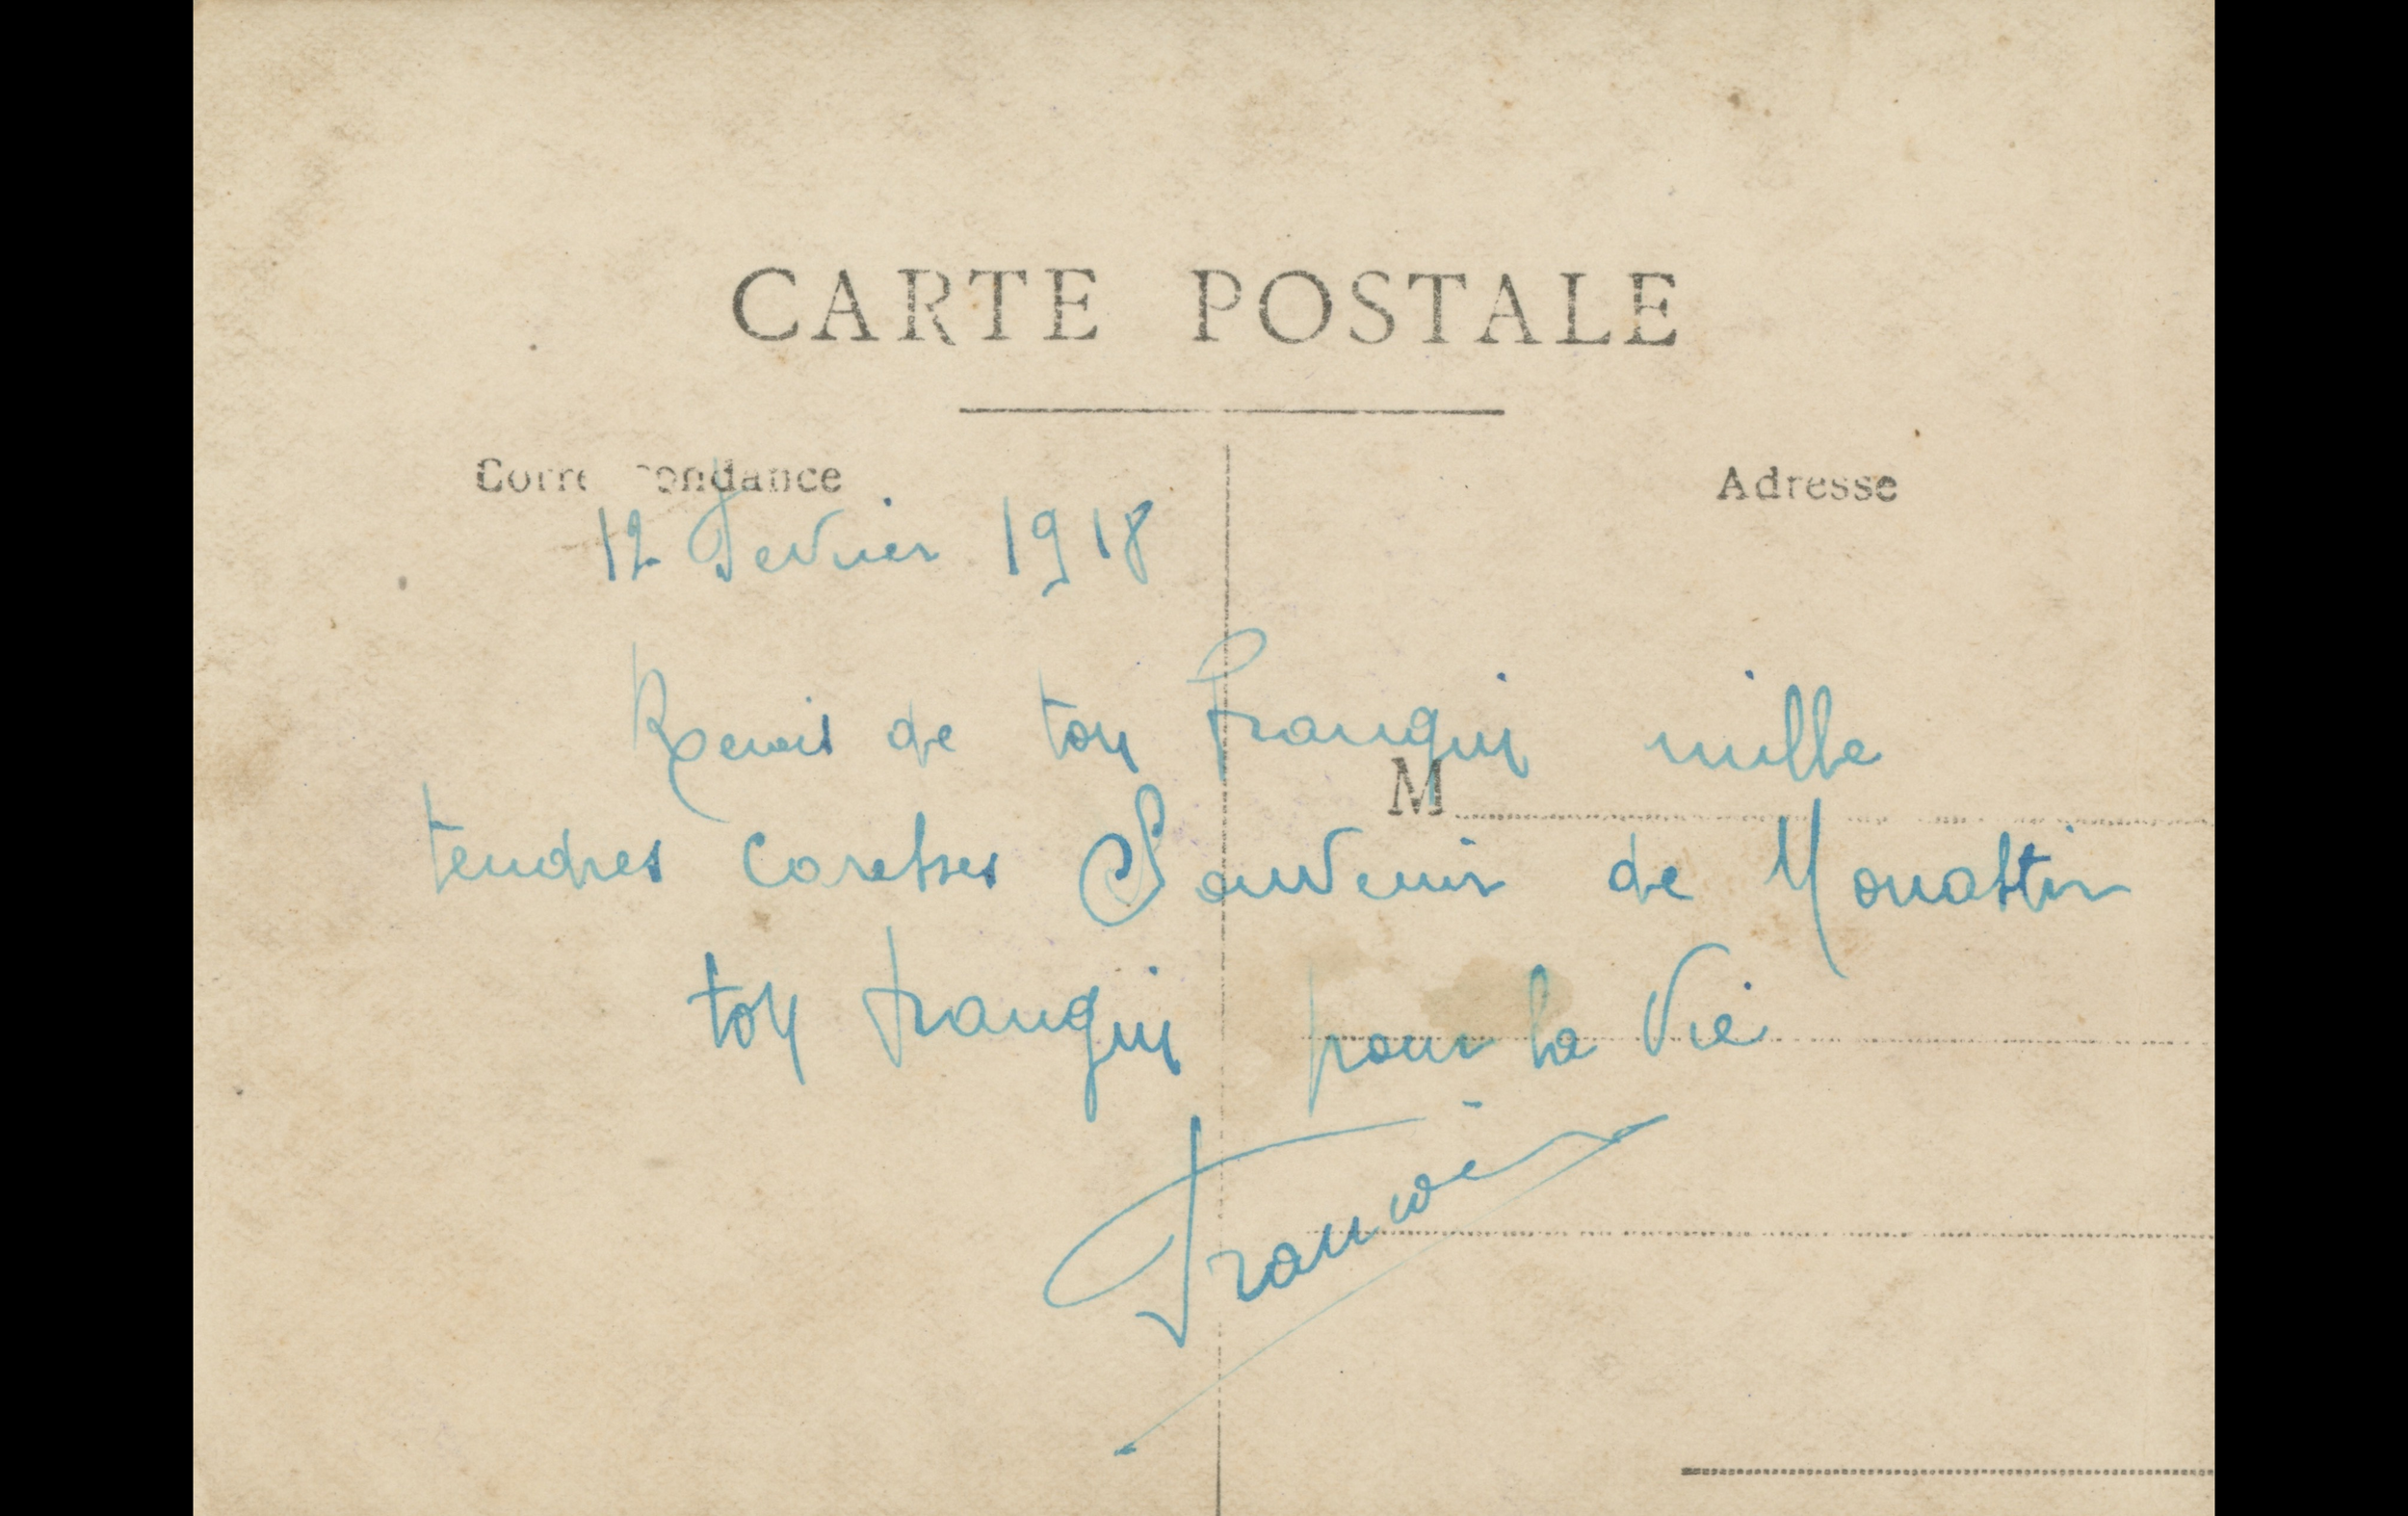 CARTE POSTALE
Correspondance
Adresse
12 Fevrier 1918
Recois de ton franqui mille
M
tendres caresses Souvenir de Monastir
ton franqui pour la Vie